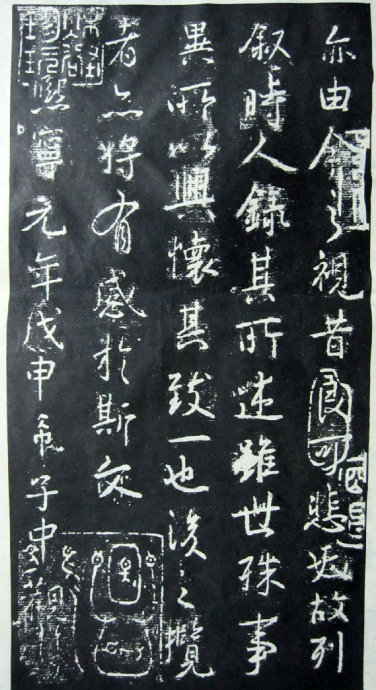 亦由今之視昔良可悲夫故列
叙時人錄其所述雖世殊事
異所以興懷其致一也後之攬
者亦將有感於斯文
熙寧元年戊申子中